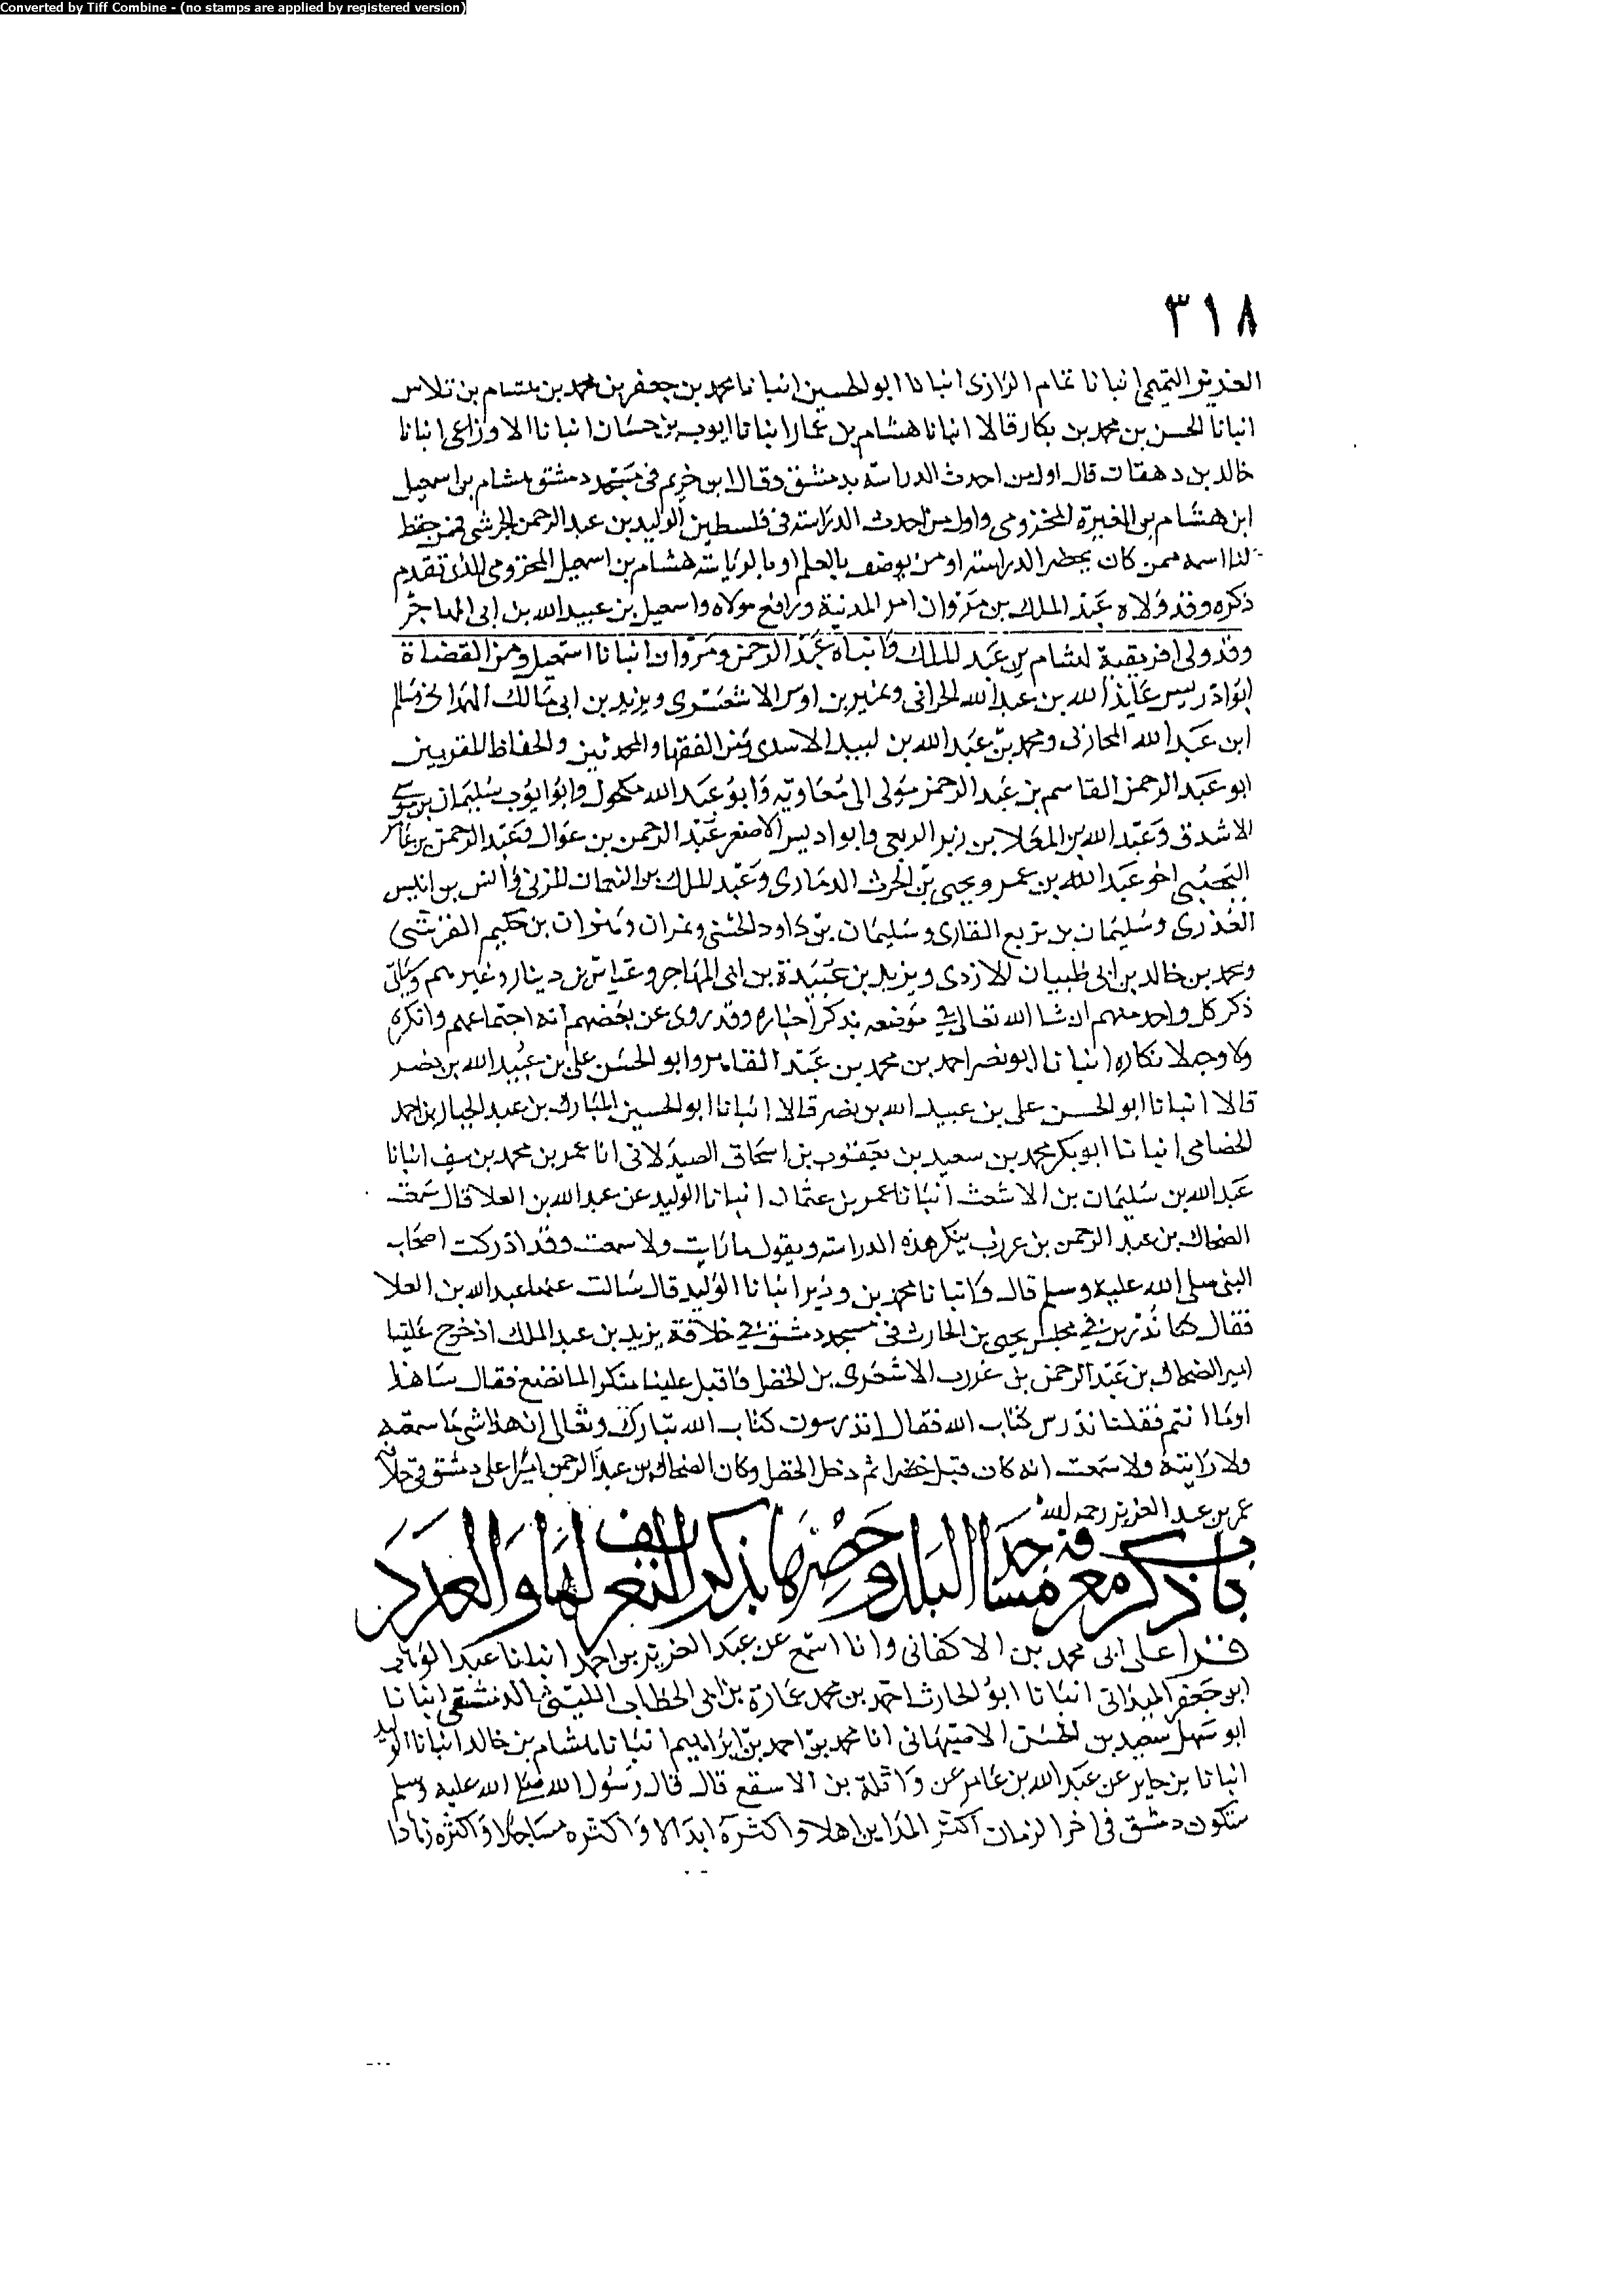 Converted by Tiff Combine - (no stamps are applied by registered version)
٣١٨
العزيز التميمي انبانا تمام الرازي انبانا ابو الحسين انبانا محمد بن جعفر بن محمد بن هشام بن ملاس
انبانا الحسن بن محمد بن بكار قالا انبانا هشام بن عمار انبانا ايوب بن حسان انبانا الاوزاعي انبانا
خالد بن دهقان قال اول من احدث الدراسة بدمشق وقال ابن خريم في مسجد دمشق هشام بن اسمعيل
ابن هشام بن المغيرة المخزومي واول من احدث الدراسة في فلسطين الوليد بن عبد الرحمن الجرشي فمن حفظ
لنا اسمه ممن كان يحضر الدراسة او من يوصف بالعلم او بالرياسة هشام بن اسمعيل المخزومي الذي تقدم
ذكره وقد ولاه عبد الملك بن مروان امر المدينة ورافع مولاه واسمعيل بن عبيد الله بن ابي المهاجر
وقد ولي افريقية لهشام بن عبد الملك وابناه عبد الرحمن ومروان انبانا اسمعيل ومن القضاة
ابو ادريس عايذ الله بن عبد الله الخراني ونمير بن اوس الاشعري ويزيد بن ابي مالك الهمداني وسالم
ابن عبد الله المحاربي ومحمد بن عبد الله بن لبيد الاسدي ومن الفقها والمحدثين والحفاظ للمقريين
ابو عبد الرحمن القاسم بن عبد الرحمن مولى الى معاوية وابو عبد الله مكحول وابو ايوب سليمان بن موسى
الاشدق وعبد الله بن العلا بن زبر الربعي وابو ادريس الاصغر عبد الرحمن بن عراك وعبد الرحمن بن عامر
اليحصبي اخو عبد الله بن عمر ويحيى بن الحرث الذماري وعبد الملك بن النعمان المزني وانس بن انيس
العذري وسليمان بن بزيع القاري وسليمان بن داود الخشني ونمران وهزان بن حكيم القرشي
ومحمد بن خالد بن ابي ظبيان الازدي ويزيد بن عبيدة بن ابي المهاجر وعياش بن دينار وغيرهم وسياتي
ذكر كل واحد منهم ان شا الله تعالى في موضعه بذكر اخباره وقد روى عن بعضهم انه اجتماعهم وانكره
ولا وجه لانكاره انبانا ابو نصر احمد بن محمد بن عبد القاهر وابو الحسن علي بن عبيد الله بن نصر
قالا انبانا ابو الحسن علي بن عبيد الله بن نصر قالا انبانا ابو الحسين المبارك بن عبد الجبار بن احمد
انبانا ابو بكر محمد بن سعيد بن يعقوب بن اسحاق الصيدلاني انا عمر بن محمد بن سيف انبانا
عبد الله بن سليمان بن الاشعث انبانا عمر بن عثمان انبانا الوليد عن عبد الله بن العلا قال سمعت
الضحاك بن عبد الرحمن بن عرزب ينكر هذه الدراسة ويقول ما رايت ولا سمعت وقد ادركت اصحاب
النبي صلى الله عليه وسلم قال وانبانا محمد بن وزير انبانا الوليد قال سالت عنها عبد الله بن العلا
فقال كنا ندرس في مجلس يحيى بن الحارث في مسجد دمشق في خلافة يزيد بن عبد الملك اذ خرج علينا
امير الضحاك بن عبد الرحمن بن عرزب الاشعري من الخضرا فاقبل علينا منكرا لما نصنع فقال ما هذا
او ما انتم فقلنا ندرس كتاب الله فقال اتدرسون كتاب الله تبارك وتعالى ان هذا شي ما سمعته
ولا رايته ولا سمعت انه كان قبل خضرا ثم دخل الخضرا وكان الضحاك بن عبد الرحمن اميرا على دمشق في خلافة
عمر بن عبد العزيز رحمه الله
باب ذكر معرفة مساجد البلد وحصرها بذكر التعريف لها والعدد
قرا على ابي محمد بن الاكفاني وانا اسمع عن عبد العزيز بن احمد انبانا عبد الوهاب
ابن جعفر الميداني انبانا ابو الحارث احمد بن محمد عمارة بن ابي الخطاب الليثي الدمشقي انبانا
ابو سهل سعيد بن الحسن الاصبهاني انا محمد بن احمد بن ابراهيم انبانا هشام بن خالد انبانا الوليد
انبانا بن جابر عن عبد الله بن عامر عن واثلة بن الاسقع قال قال رسول الله صلى الله عليه وسلم
ستكون دمشق في اخر الزمان اكثر المداين اهلا واكثره ابدالا واكثره مساجدا واكثره زهادا